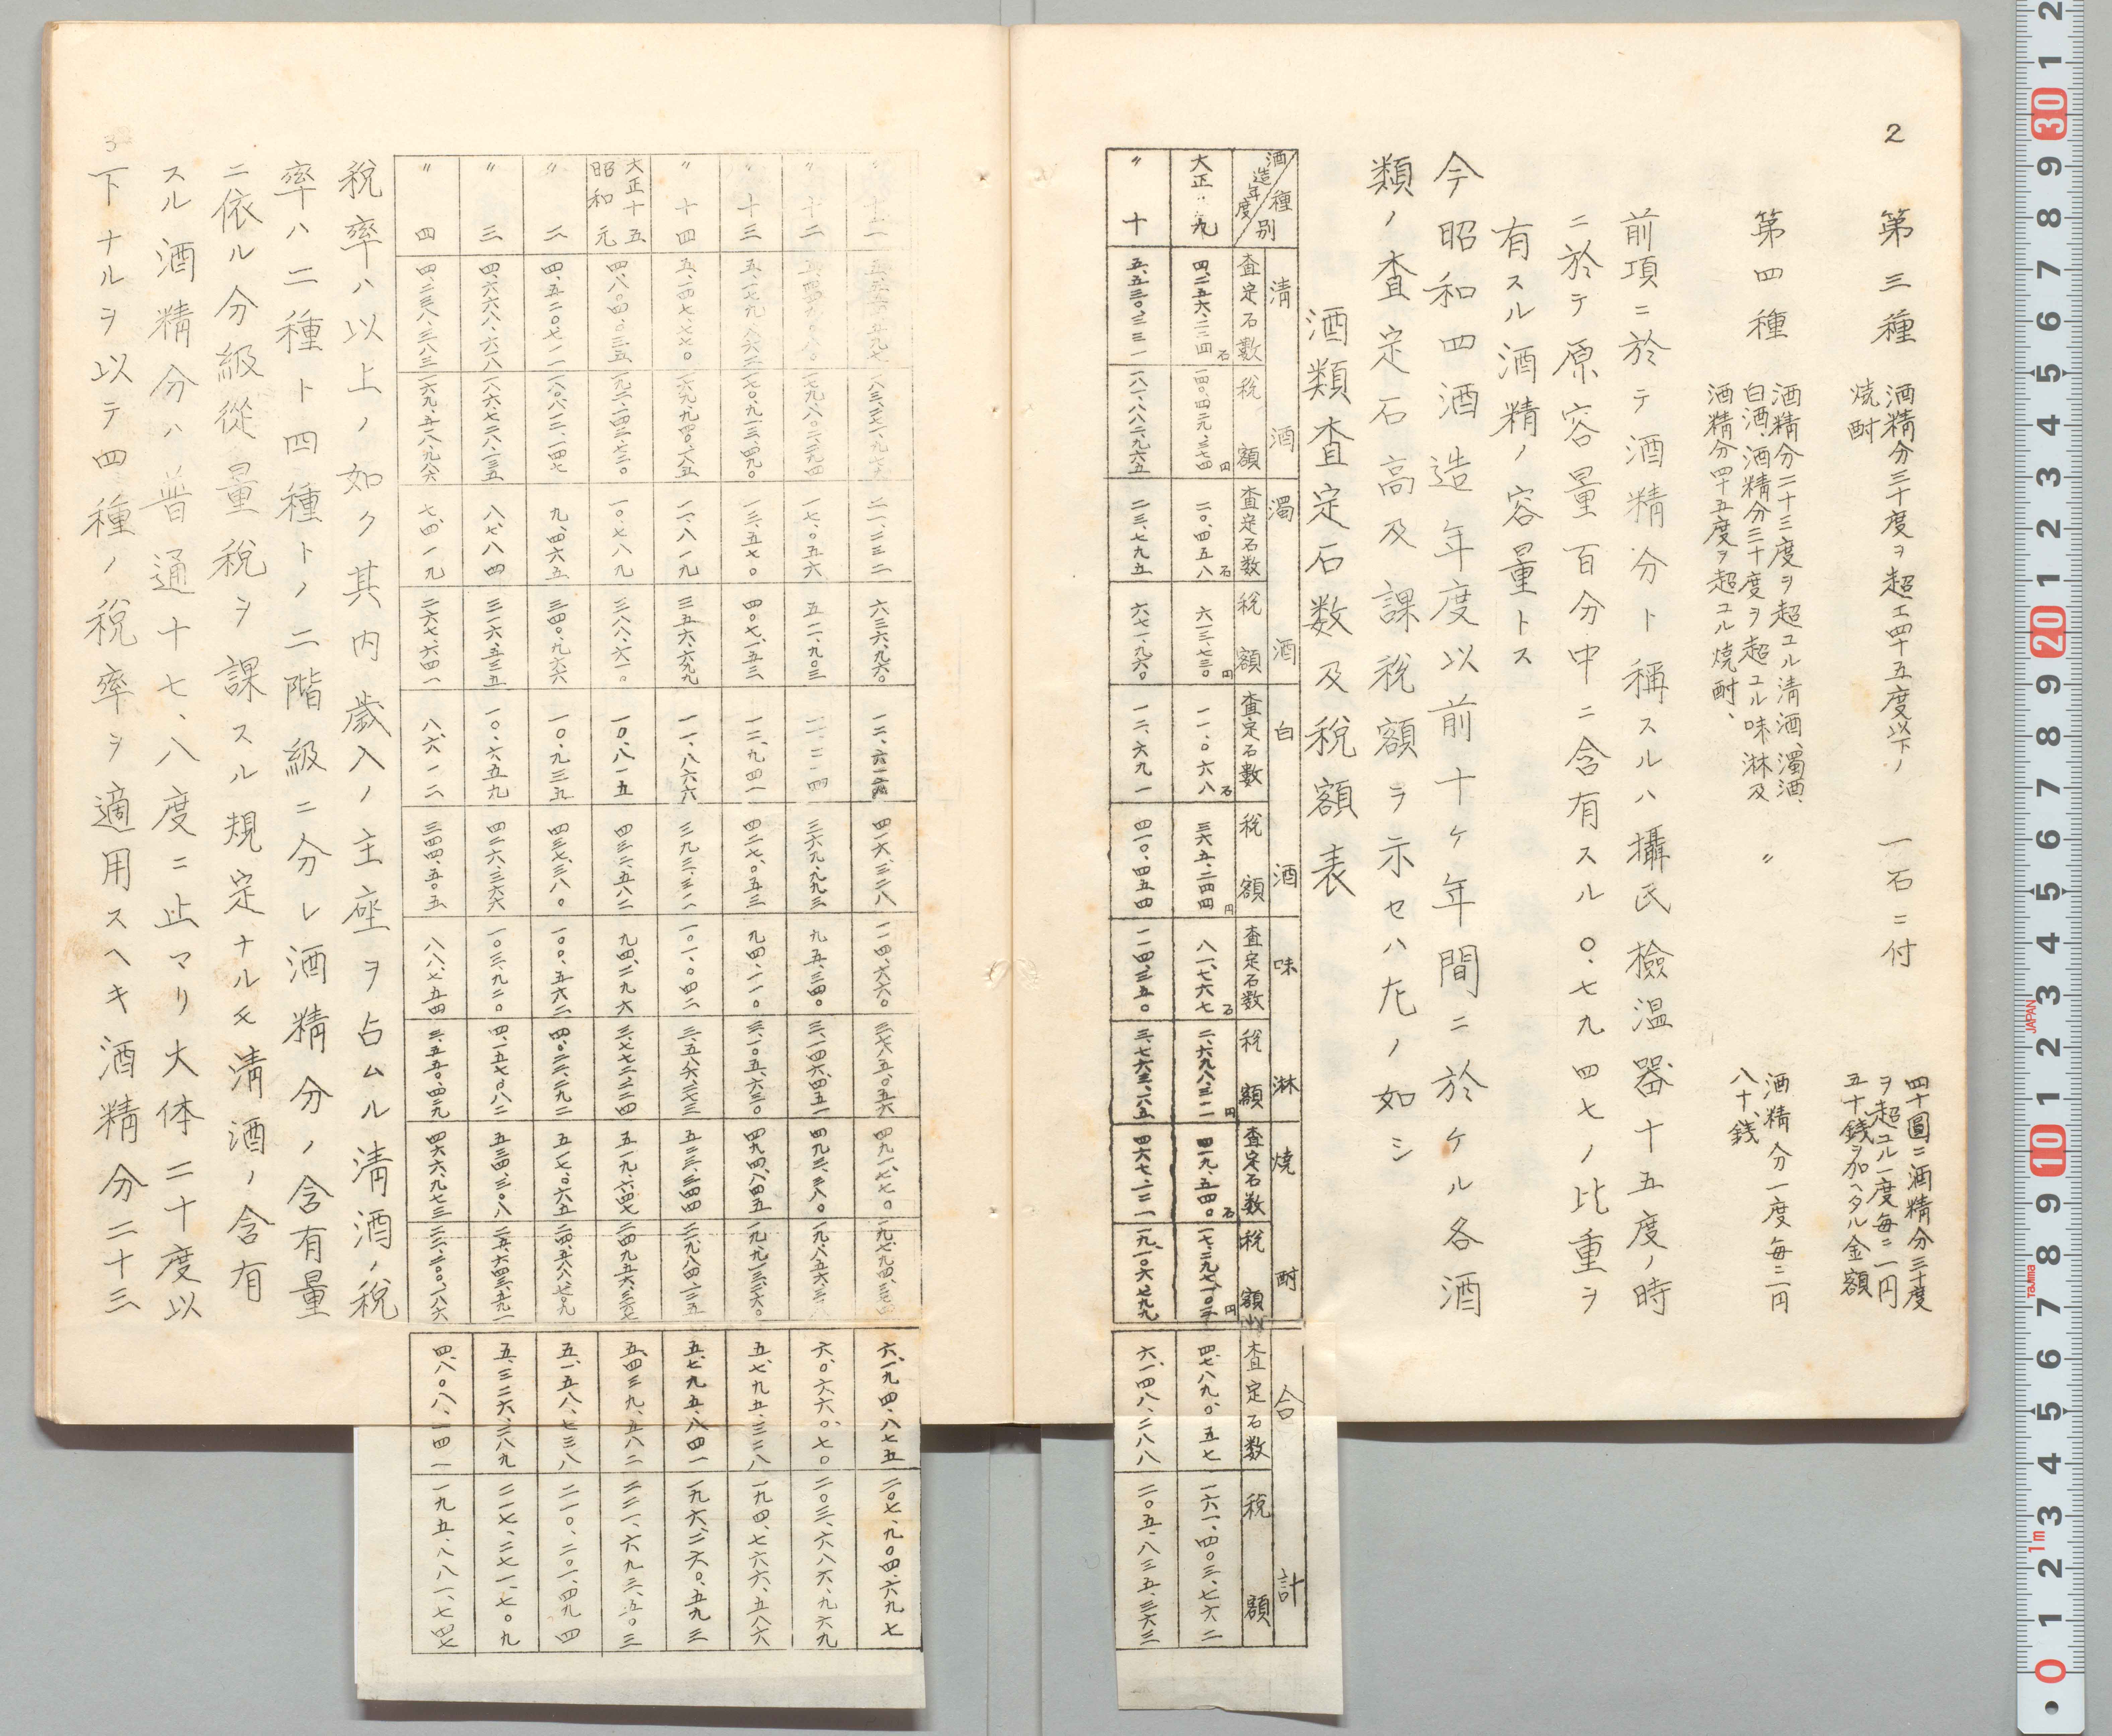 2
第三種
酒精分三十度ヲ超エ四十五度以下ノ
焼酎
一石ニ付
四十圓ニ酒精分三十度
ヲ超ユル一度毎ニ一円
五十銭ヲ加ヘタル金額
第四種
酒精分二十三度ヲ超ユル清酒、濁酒、
白酒、酒精分三十度ヲ超ユル味淋及
酒精分四十五度ヲ超ユル焼酎、
〃
酒精分一度毎ニ一円
八十銭
前項ニ於テ酒精分ト稱スルハ攝氏檢温器十五度ノ時
ニ於テ原容量百分中ニ含有スル〇.七九四七ノ比重ヲ
有スル酒精ノ容量トス
今昭和四酒造年度以前十ヶ年間ニ於ケル各酒
類ノ査定石高及課税額ヲ示セハ左ノ如シ
酒類査定石数及税額表
酒種別
造年度
清酒
濁酒
白酒
味淋
焼酎
合計
査定石數 税額 査定石数 税額 査定石數 税額 査定石数 税額 査定石数 税額 査定石数 税額
大正九 四、二五六、二二四石 一四〇、四二九、三七四円 二〇、四五八石 六一三、七三〇円 一一、〇六八石 三六五、二四四円 八一、七六七石 二、六九八、三一一円 四一九、五四〇石 四、七八九、〇五七 一六一、四〇三、七六二
〃 十 五、五三〇、三三一 一八一、八八二、九六五 二三、七九五 六七一、九六〇 一二、六九一 四一〇、四五四 一一四、三五〇 三、七六三、一六五 四六七、一二一 一九、一〇六、七九九 六、一四八、二八八 二〇五、八三五、三六三
〃 十一 二一、二三二 六三六、九六〇 四一六、三二八 一一四、六六〇 四九一、七七〇 六、一九四、八七五 二〇七、九〇四、六九七
〃 十二 一七、〇五六 五一二、九〇三 三六九、九九三 九五、三四〇 三、一四六、四五一 四九三、三八〇 六、〇六六、〇七〇 二〇三、六八六、九六九
〃 十三 一七〇、九一三、四九〇 一三、五七〇 四〇七、一五三 一二、九四一 四二七、〇五三 九四、一一〇 三、一〇五、六三〇 四九四、八四五 五、七九五、三二八 一九四、七六六、五八六
〃 十四 五、一四七、七七〇 一六九、九四〇、一八五 一一、八一九 三五六、六九九 一一、八六六 三九三、三一一 一〇一、〇四二 五二三、三四四 五、七九五、八四一 一九六、二六〇、五九三
大正十五
昭和元
四、八〇四、〇三五 一九二、一四三、七三〇 一〇、七八九 三八八、六一〇 一〇、八一五 四三二、五八二 九四、二九六 三、七七二、二二四 五一九、六四七 二四、九五六、三五七 五、四三九、五八二 二二一、六九三、五〇三
〃 二 四、五二〇、七一一 一八〇、八一三、一四七 九、四六五 三四〇、九六六 一〇、九三五 四三七、三八〇 一〇〇、五六二 四、〇二二、二九二 五一七、〇六五 五、一五八、七三八 二一〇、二〇一、四九四
〃 三 四、六六八、六一八 一八六、七二八、一三五 八、七八四 三一六、五三五 一〇、六五九 四二六、三六六 一〇三、九二〇 四、一五七、〇八二 五三四、三〇八 二五、六四三、五九一 五、三二六、二八九 二一七、二七一、七〇九
〃 四 四、二三八、三八三 一六九、五一八、九八六 七、四一九 二六七、六四一 八、六一二 三四四、五〇五 八八、七五四 三、五五〇、四二九 四六六、九七三 二二、二〇〇、一八六 四、八〇八、一四一 一九五、八八一、七四七
税率ハ以上ノ如ク其内歳入ノ主座ヲ占ムル清酒ノ税
率ハ二種ト四種トノ二階級ニ分レ酒精分ノ含有量
ニ依ル分級從量税ヲ課スル規定ナルモ清酒ノ含有
スル酒精分ハ普通十七、八度ニ止マリ大体二十度以
下ナルヲ以テ四種ノ税率ヲ適用スヘキ酒精分二十三